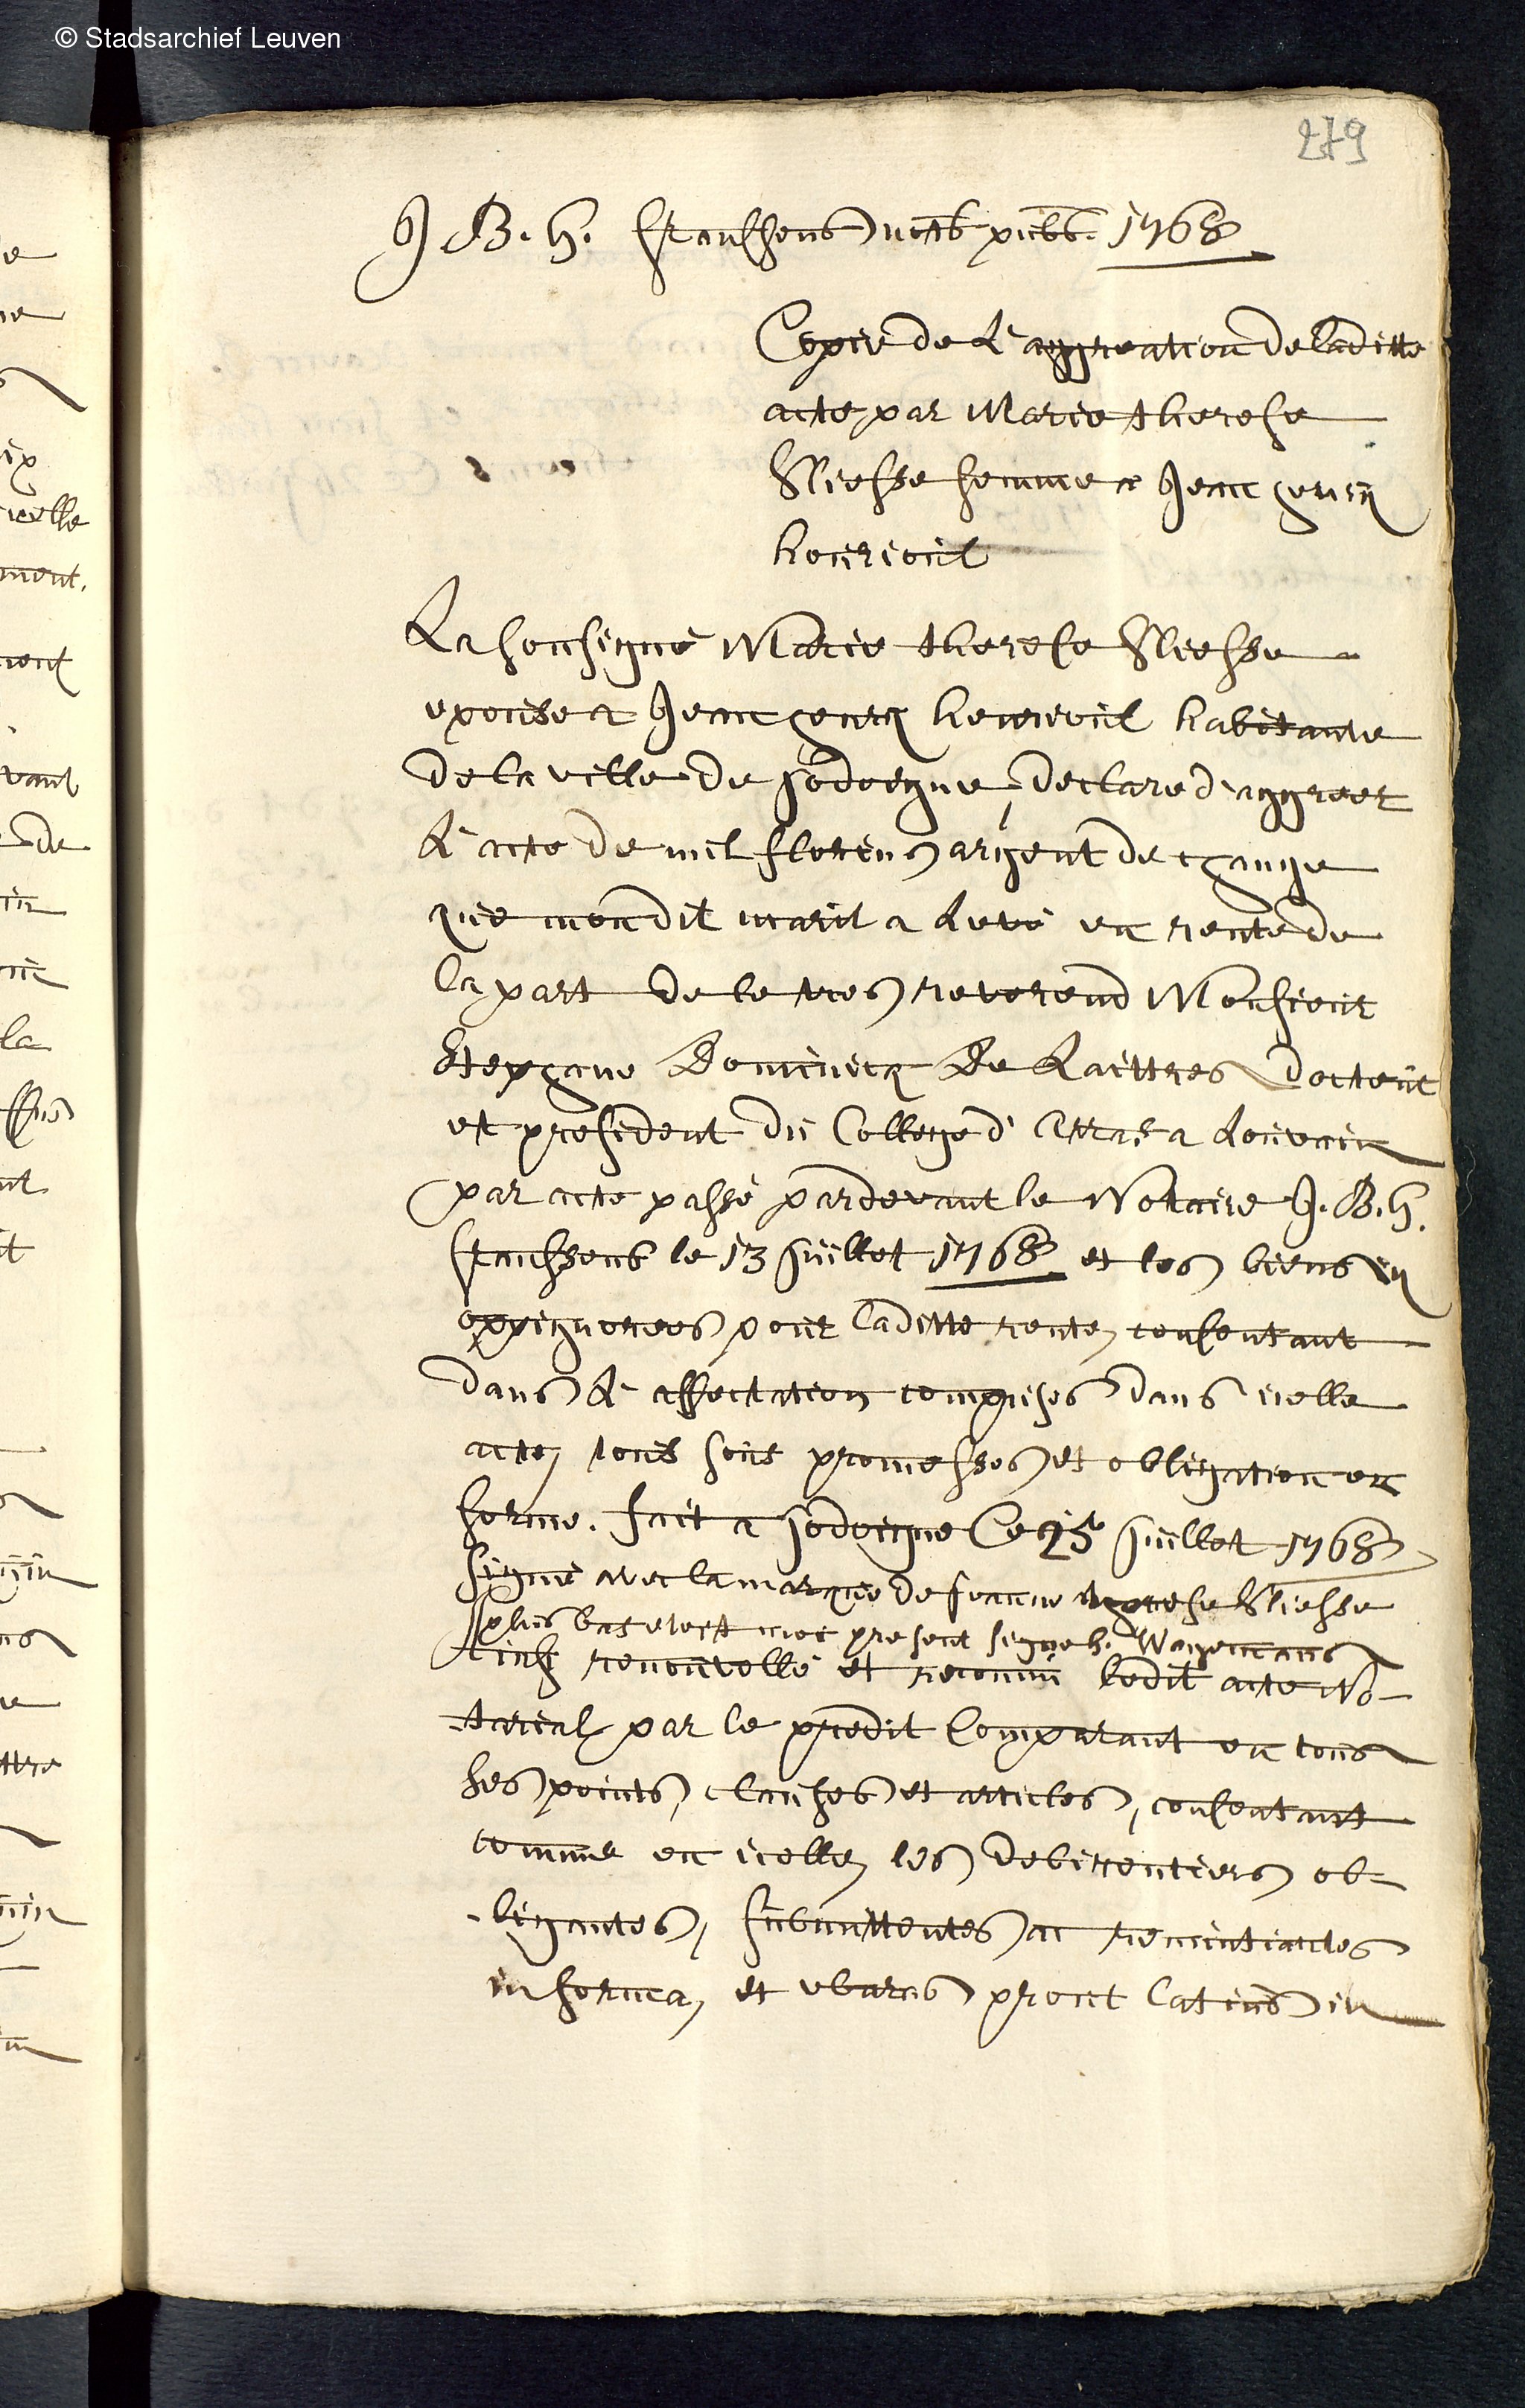 © Stadsarchief Leuven
279
J. B. H. franssens nots pubs. 1768
Copie de L'aggreation de laditte
acte par Marie therese
femme a Jean henrij
hourioul
La sousigné Marie therese
epouse a Jean henrij hourioul habitante
de la ville de jodoigne, declare d'aggreer
L'acte de mil florins argent de change
que mon dit marit a levé en rente de
la part de le tres reverend Monsieur
Stephane Dominicq De Laittres docteur
et president du College d'Arras a Louvain
par acte passé pardevant le Notaire J. B. H.
franssens le 13 juillet 1768 et les biens ij
oppignorees pour laditte rente, consentant
dans L'affectation comprises dans icelle
acte, tous sous promesses et obligation en
forme. fait a jodoigne Ce 25 juillet 1768
signé avec la marque de femme therese
plus bas etoit moi present signé h. Wagemans
Ainsi renouvellé et reconnu ledit acte No-
-tarial par le predit Comparant en tous
ses points, clauses et articles, consentant
comme en icelle, les debitrentiers ob-
-ligantes, submittentes ac renuntiantes
in forma, et obarés prout latius in
Jie
icelle
ment.
vant
de
la